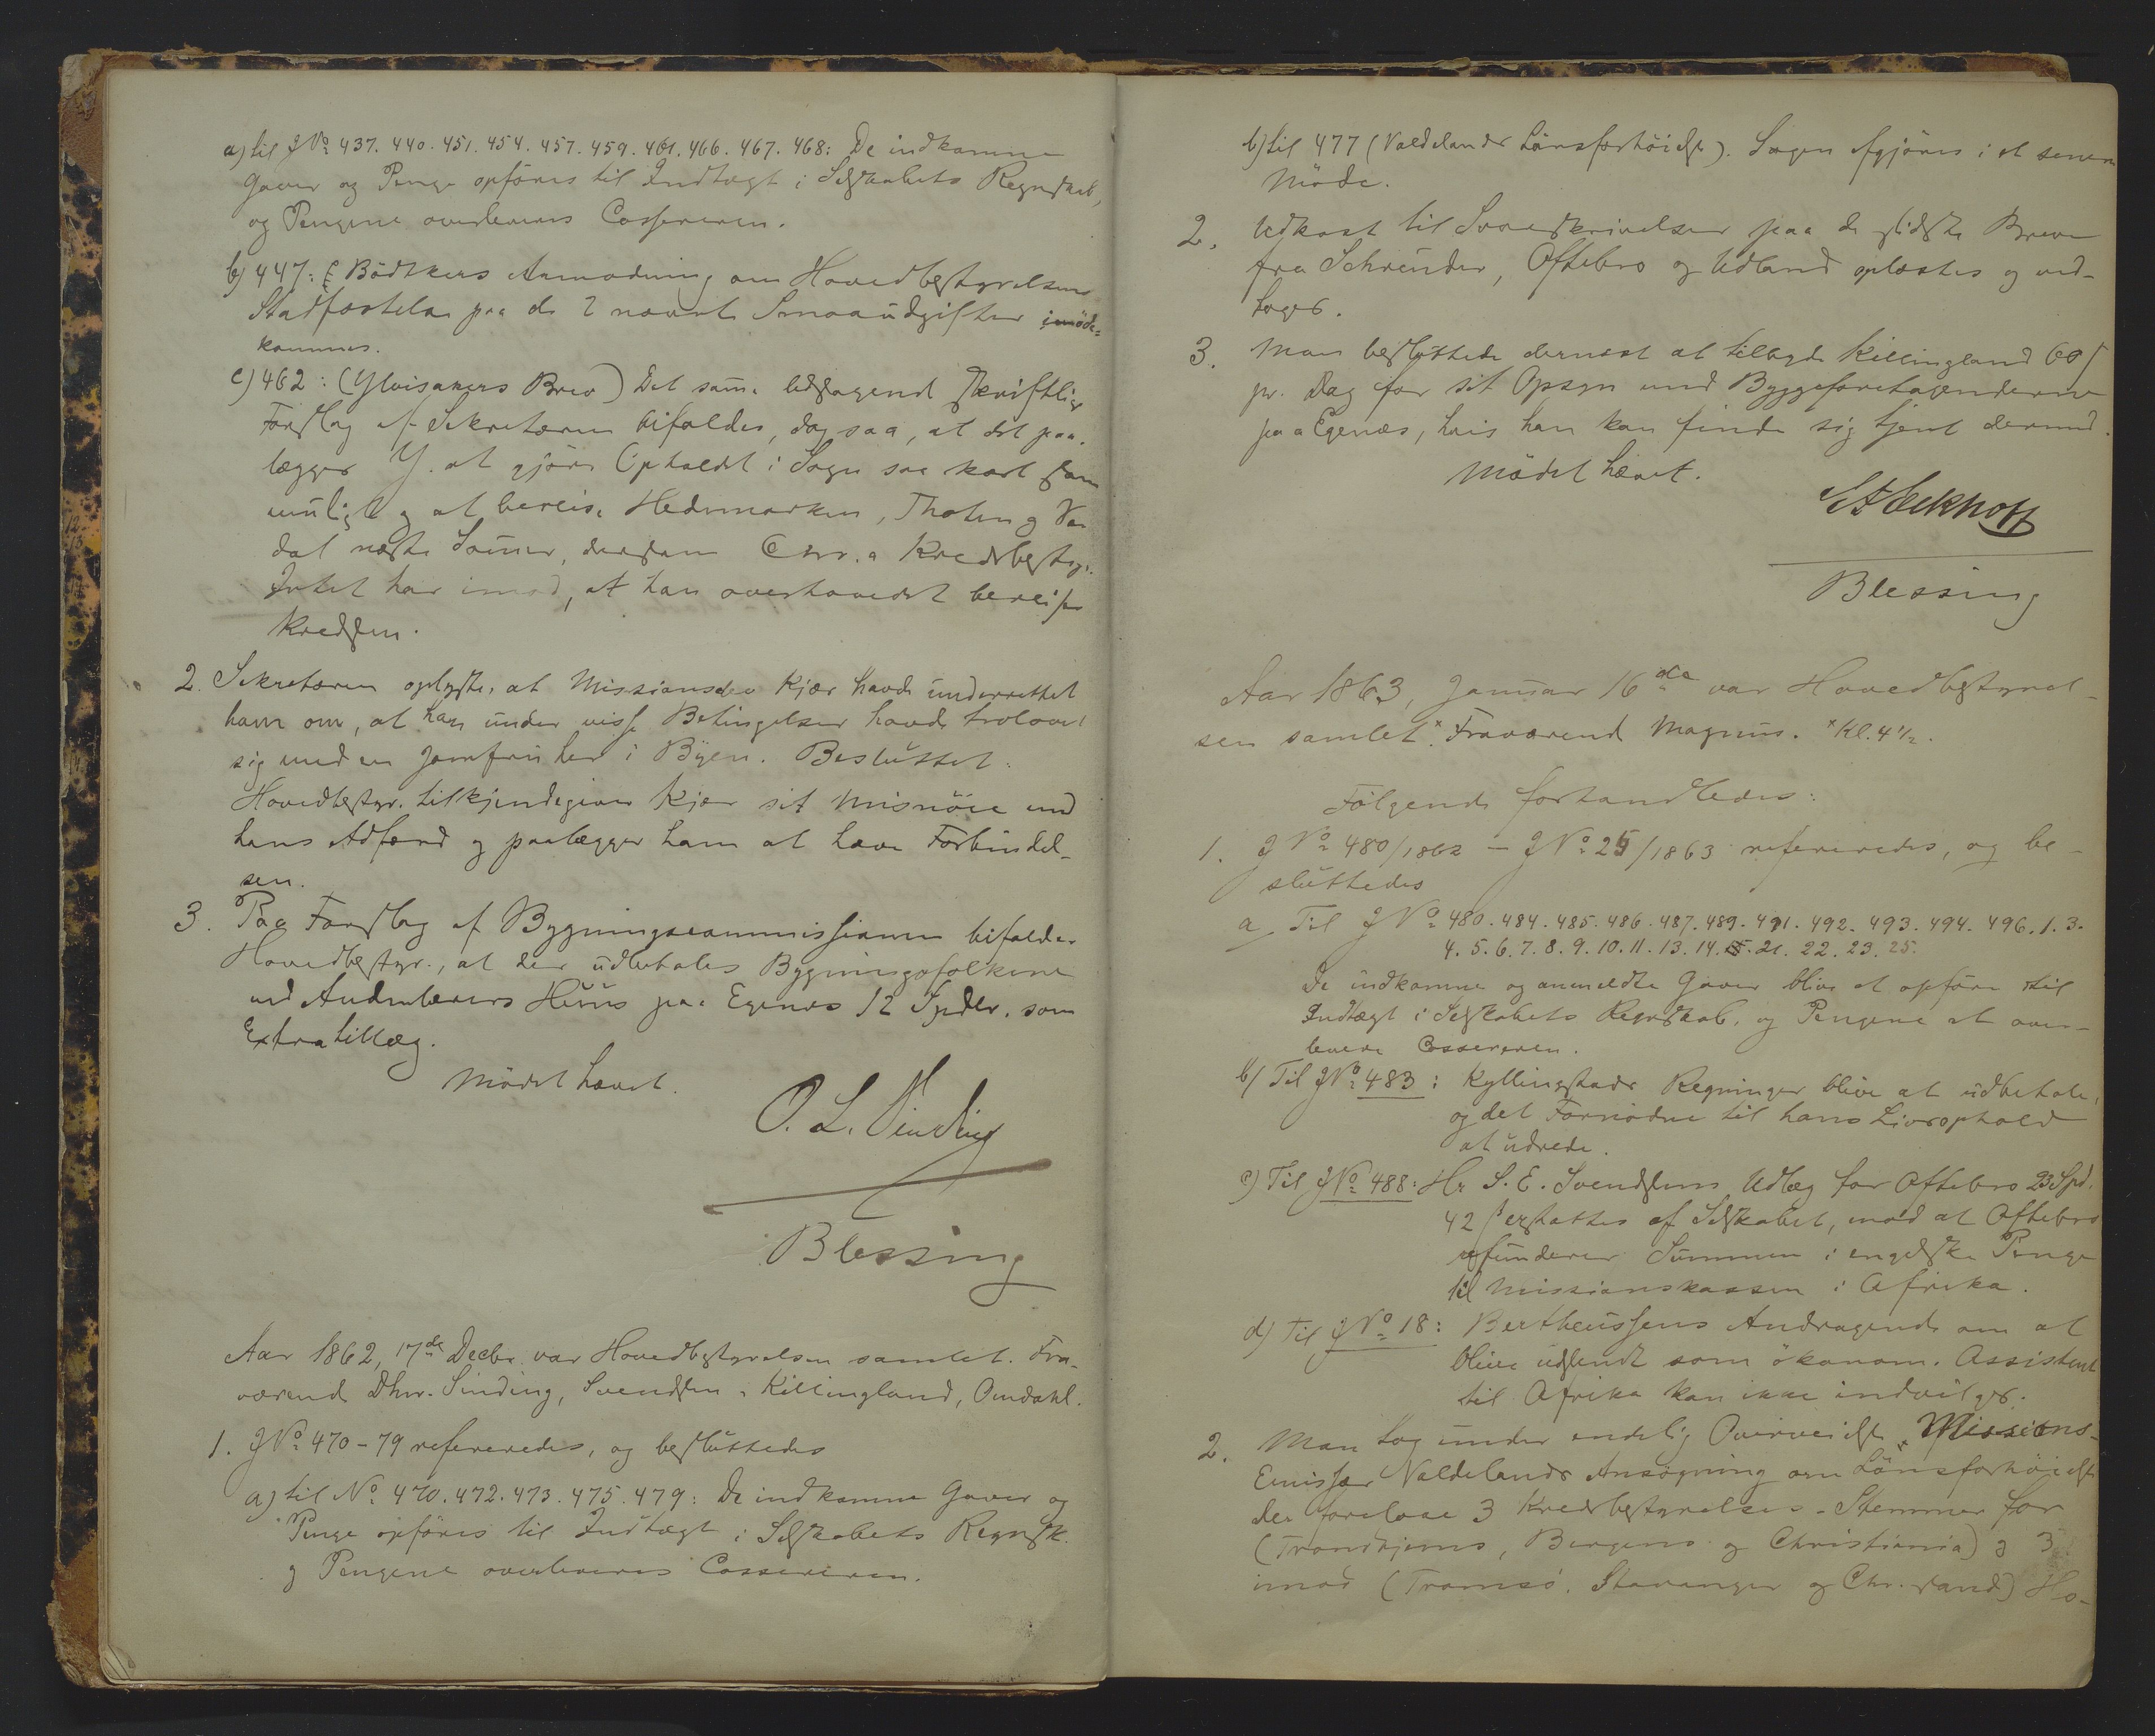 a) til J№ 437. 440. 451. 454. 457. 459. 461. 466. 467. 468: De indkomne
Gaver og Penge opföres til Indtægt i Selskabets Regnskab,
og Pengene overleveres Cassereren.
b) 447: Bödtkers Anmodning om Hovedbestyrelsens
Stadfæstelse paa de 2 nævnte Smaaudgifter imöde-
kommes.
c) 462: (Ylvisakers Brev) Det samme ledsagende skriftlige
Forslag af Sekretæren bifaldes, dog saa, at det paa-
lægges Y. at gjöre Opholdet i Sogn saa kort som
muligt og at bereise Hedemarken, Thoten og
dal næste Sommer, dersom Chr.a Kredsbestyr.
Intet har imod, at han overhovedet bereiser
Kredsen.
2. Sekretæren oplyste, at Missionselev Kjær havde underrettet
ham om, at han under visse Betingelser havde trolovet
sig med en Jomfru her i Byen. Besluttet:
Hovedbestyr. tilkjendegiver Kjær sit Misnöie med
hans Adfærd og paalægger ham at hæve Forbindel-
sen.
3. Paa Forslag af Bygningscommissionen bifalder
Hovedbestyr., at der udbetales Bygningsfolkene
ved Andenlærers Huus paa Egenes 12 Spdlr. som
Extratillæg.
Mödet hævet.
O. L. Sinding
Blessing
Aar 1862, 17de Decbr. var Hovedbestyrelsen samlet. Fra-
værende Dhrr. Sinding, Svendsen, Killingland, Omdahl.
1. J№ 470-79 refereredes, og besluttedes
a) til № 470. 472. 473. 475. 479: De indkomne Gaver og
Penge opföres til Indtægt i Selskabets Regnsk.
og Pengene overleveres Cassereren.
b) til 477 (Valdelands Lönsforhöielse). Sagen afgjöres i et senere
Möde.
2. Udkast til Svarskrivelser paa de sidste Breve
fra Schreuder, Oftebro og Udland oplæstes og ved-
toges.
3. Man besluttede dernæst at tilbyde Killingland 60 ß
pr. Dag for sit Opsyn med Byggeforetagenderne
paa Egenæs, hvis han kan finde sig tjent dermed.
Mödet hævet.
Eckhoff
Blessing
Aar 1863, Januar 16de var Hovedbestyrel-
sen samlet.x Fraværende Magnus. x Kl. 4 1/2.
Fölgende forhandledes:
1. J№ 480/1862 - J№ 25/1863 refereredes, og be-
sluttedes
a, Til J№ 480. 484. 485. 486. 487. 489. 491. 492. 493. 494. 496. 1. 3.
4. 5. 6. 7. 8. 9. 10. 11. 13. 14. 15. 21. 22. 23. 25.
De indkomne og anmeldte Gaver blive at opföre til
Indtægt i Selskabets Regnskab, og Pengene at over-
levere Cassereren.
b) Til J№ 483: Kyllingstads Regninger blive at udbetale,
og det Fornödne til hans Livsophold
at udrede.
c) Til J№ 488: Hr S. E. Svendsens Udlæg for Oftebro 23 Spd.
42 ß erstattes af Selskabet, mod at Oftebro
refunderer Summen i engelske Penge
til Missionskassen i Afrika.
d) Til J№ 18: Bertheussens Andragende om at
blive udsendt som ökonom. Assistent
til Afrika kan ikke indvilges.
2. Man tog under endelig Overveielse Missions-
Emissær Valdelands Ansögning om Lönsforhöielse
der forelaae 3 Kredsbestyrelses-Stemmer for
(Trondhjems, Bergens og Christiania) og 3
imod (Tromsö, Stavanger og Chr.sand) Ho-